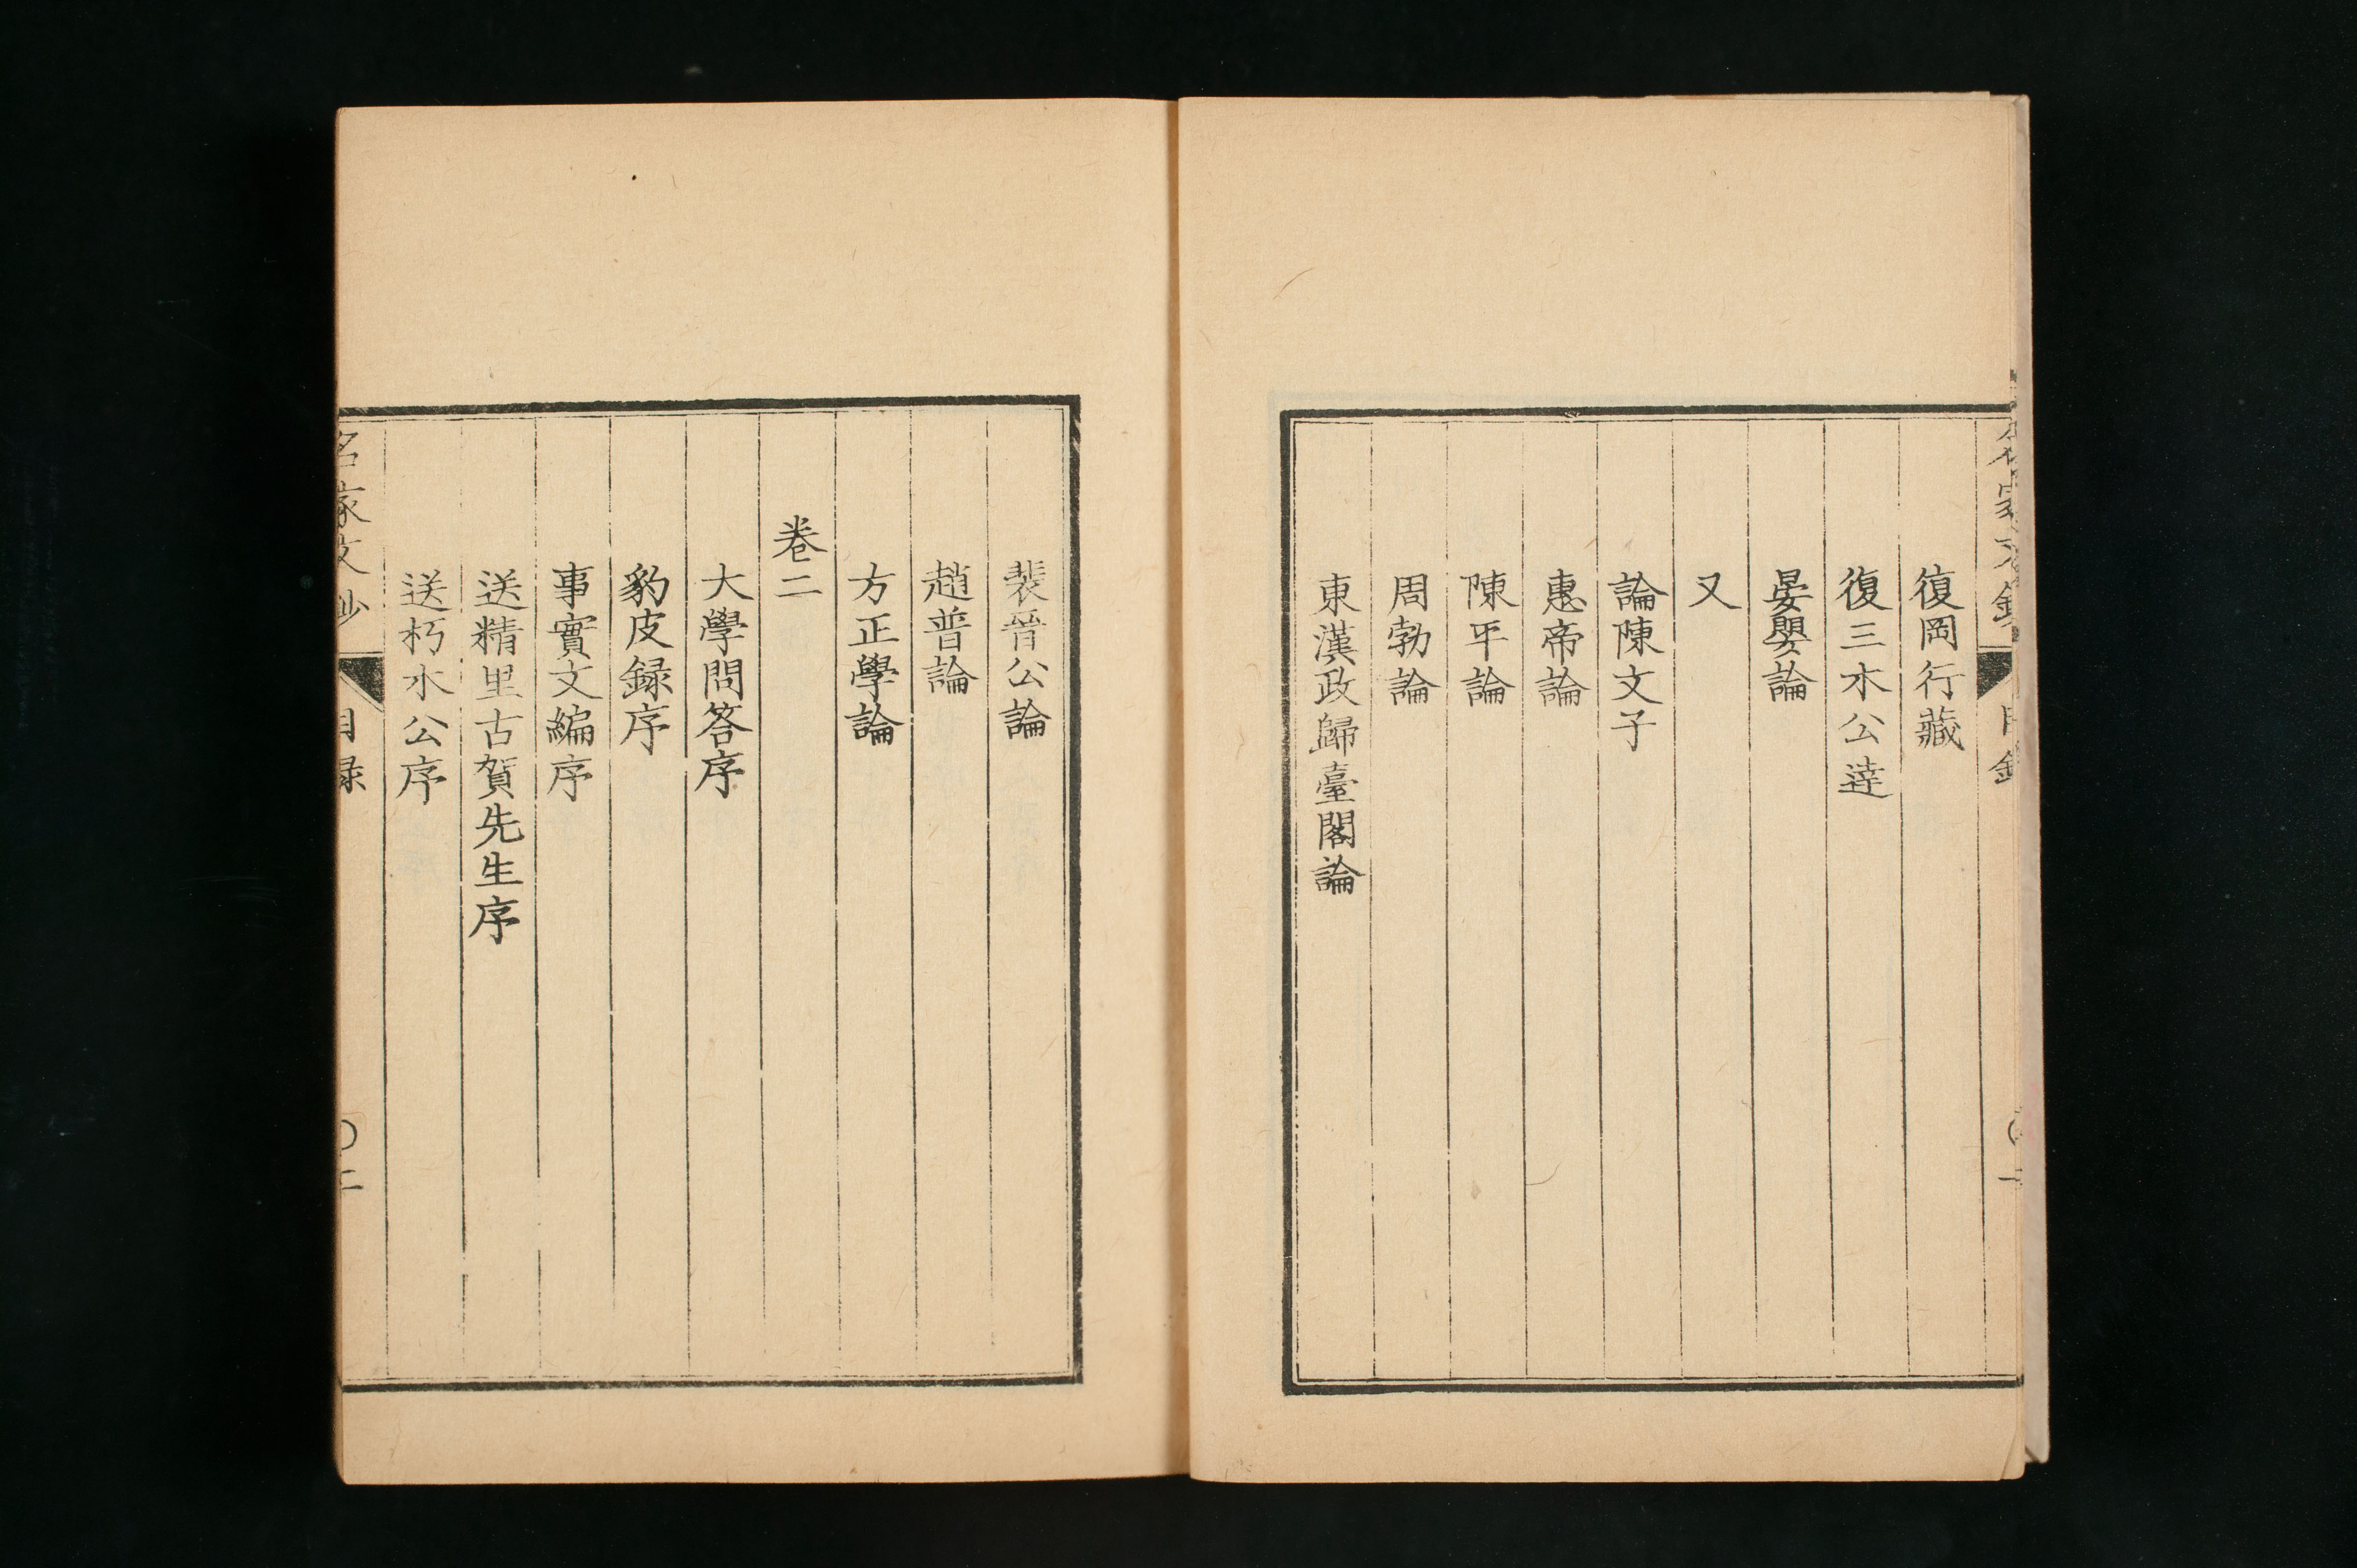 復岡行藏
復三木公逹
晏嬰論
又
論陳文子
惠帝論
陳平論
周勃論
東漢政歸臺閣論
裴晉公論
趙普論
方正學論
卷二
大學問答序
豹皮録序
事實文編序
送精里古賀先生序
送朽木公序
名家文抄 目録 〇二